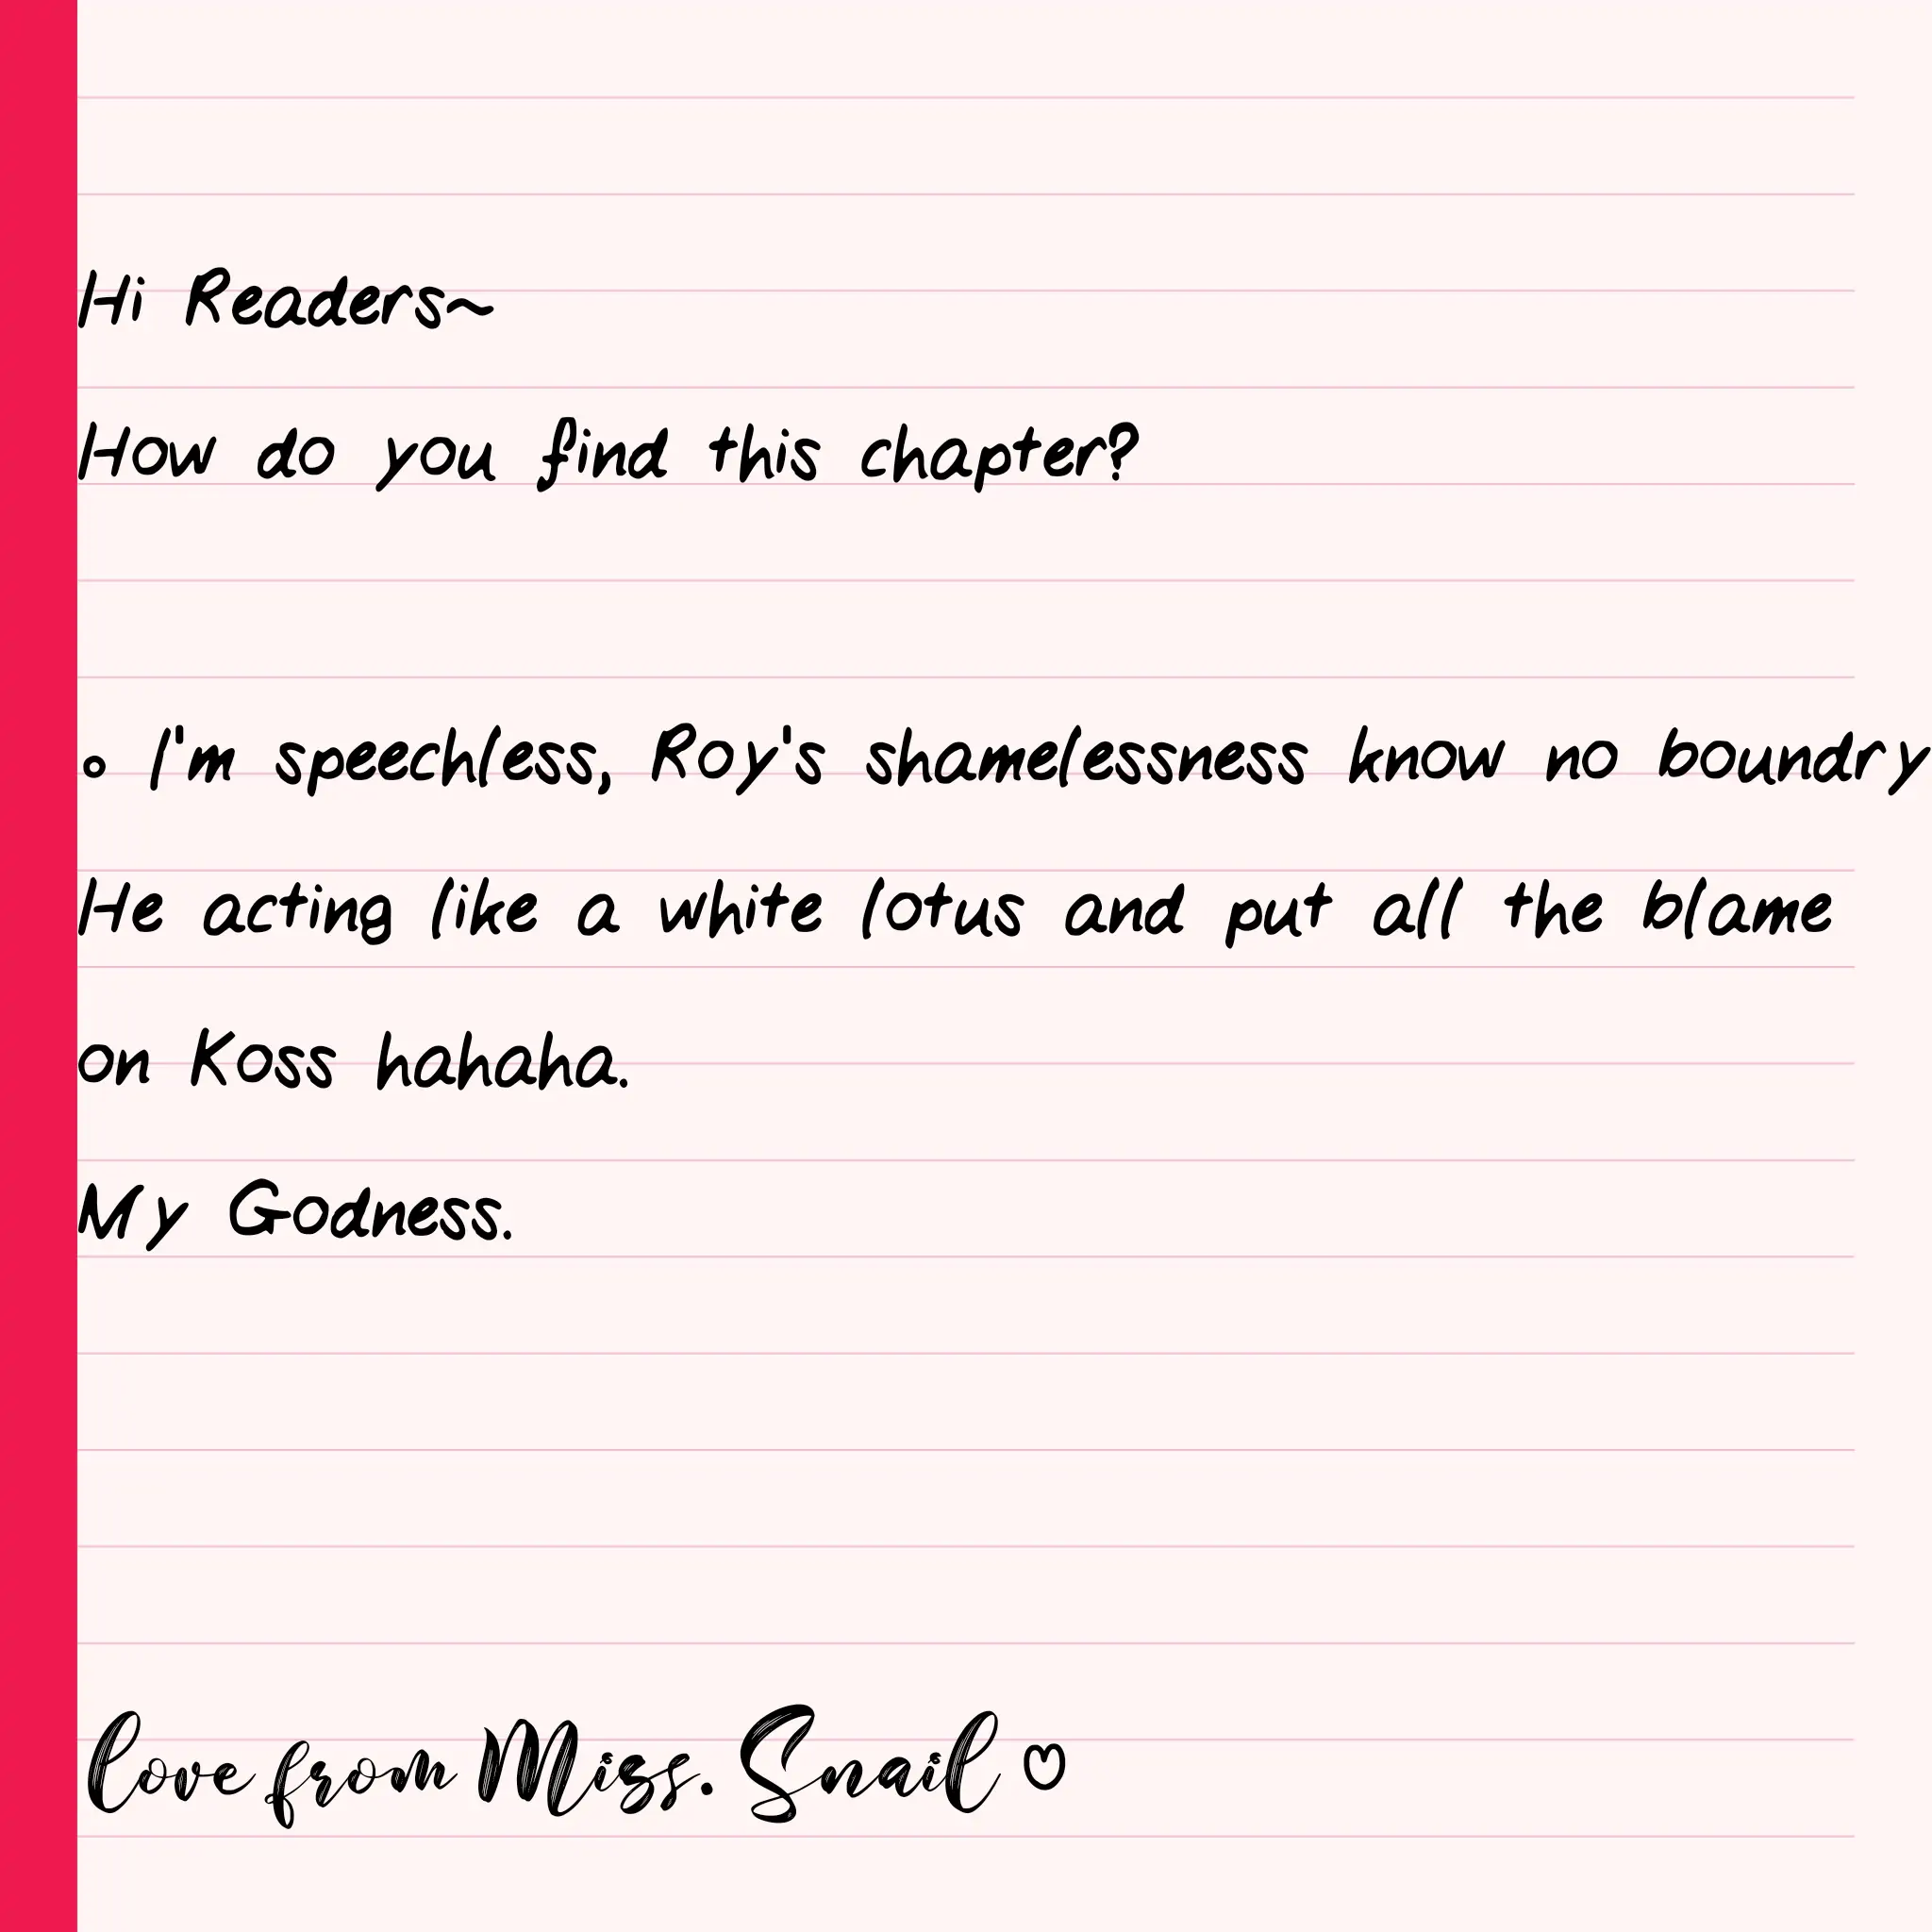 Hi Readers~
How do you find this chapter?
• I'm speechless, Roy's shamelessness know no boundary
He acting like a white lotus and put all the blame
on Koss hahaha.
My Godness.
Love from Miss. Snail ♡